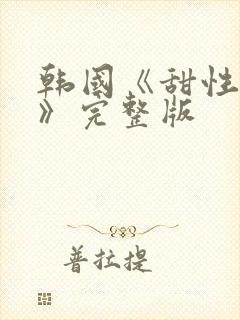 韩國《甜性
》完整版
普拉提